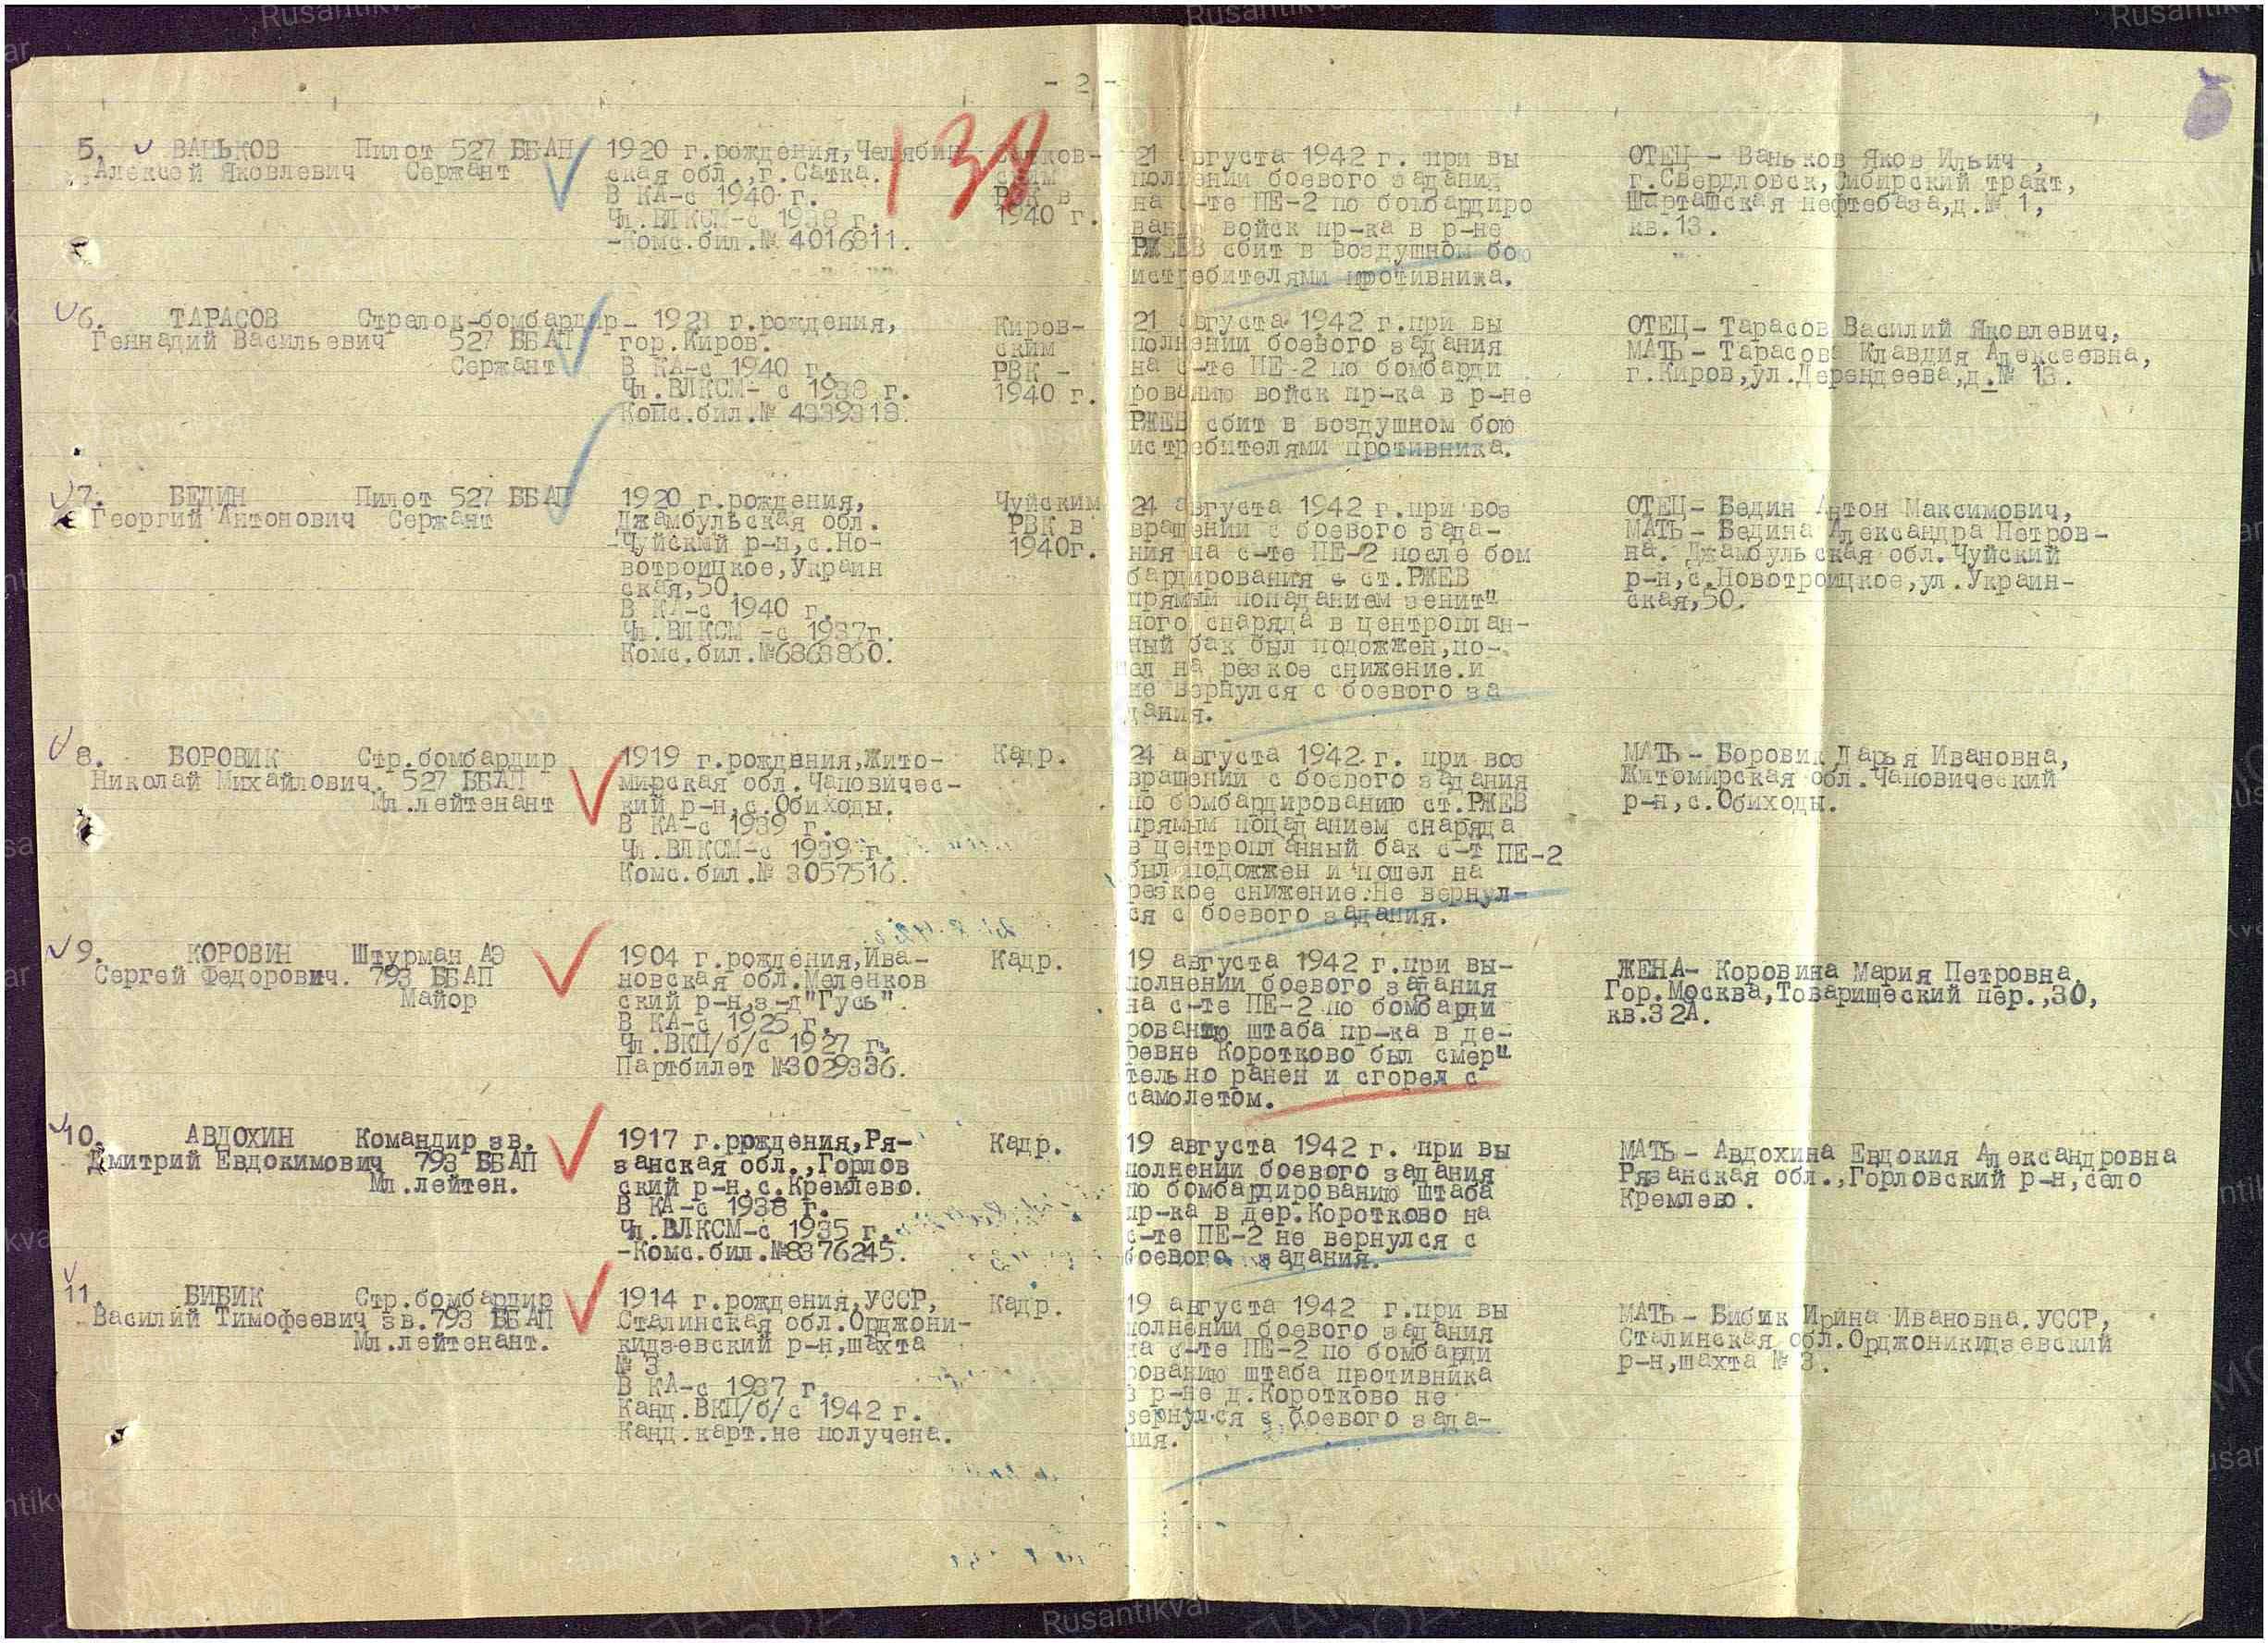 - 2 -
138
5. ВАНЬКОВ
Алексей Яковлевич
Пилот 527 ББАП
Сержант
1920 г.рождения,Челябин-
ская обл.,г.Сатка.
В КА-с 1940 г.
Чл.ВЛКСМ-с 1938 г.
-Комс.бил.№ 4016811.
РВК в
1940 г.
21 августа 1942 г. при вы
полнении боевого задания
на с-те ПЕ-2 по бомбардиро
ванию войск пр-ка в р-не
РЖЕВ сбит в воздушном бою
истребителями противника.
ОТЕЦ - Ваньков Яков Ильич,
г.Свердловск,Сибирский тракт,
Шарташская нефтебаза,д.№ 1,
кв.13.
6. ТАРАСОВ
Геннадий Васильевич
Стрелок-бомбардир-
527 ББАП
Сержант
1923 г.рождения,
гор.Киров.
В КА-с 1940 г.
Чл.ВЛКСМ- с 1938 г.
Комс.бил.№ 4339318.
Киров-
ским
РВК -
1940 г.
21 августа 1942 г.при вы
полнении боевого задания
на с-те ПЕ-2 по бомбарди
рованию войск пр-ка в р-не
РЖЕВ сбит в воздушном бою
истребителями противника.
ОТЕЦ- Тарасов Василий Яковлевич,
МАТЬ- Тарасова Клавдия Алексеевна,
г.Киров,ул.Дерендяева,д.№ 13.
7. БЕДИН
Георгий Антонович
Пилот 527 ББАП
Сержант
1920 г.рождения,
Джамбульская обл.
-Чуйский р-н,с.Но-
вотроицкое,Украин
ская,50.
В КА-с 1940 г.
Чл.ВЛКСМ -с 1937г.
Комс.бил.№6868860.
Чуйским
РВК в
1940г.
24 августа 1942 г.при воз
вращении с боевого зада-
ния на с-те ПЕ-2 после бом
бардирования с ст.РЖЕВ
прямым попаданием зенит"
ного снаряда в центроплан-
ный бак был подожжен,по-
шел на резкое снижение.и
не вернулся с боевого за
дания.
ОТЕЦ- Бедин Антон Максимович,
МАТЬ- Бедина Александра Петров-
на. Джамбульская обл.Чуйский
р-н,с.Новотроицкое,ул.Украин-
ская,50.
8. БОРОВИК
Николай Михайлович.
Стр.бомбардир
527 ББАП
Мл.лейтенант
1919 г.рождения,Жито-
мирская обл.Чаповичес-
кий р-н,с.Обиходы.
В КА-с 1939 г.
Чл.ВЛКСМ-с 1939 г.
Комс.бил.№ 3057516.
Кадр.
24 августа 1942 г. при воз
вращении с боевого задания
по бомбардированию ст.РЖЕВ
прямым попаданием снаряда
в центропланный бак с-т ПЕ-2
был подожжен и пошел на
резкое снижение.Не вернул-
ся с боевого задания.
МАТЬ- Боровик Дарья Ивановна,
Житомирская обл.Чаповический
р-н,с.Обиходы.
9. КОРОВИН
Сергей Федорович.
Штурман АЭ
793 ББАП
Майор
1904 г.рождения,Ива-
новская обл.Меленков
ский р-н,з-д"Гусь".
В КА-с 1925 г.
Чл.ВКП/б/с 1927 г.
Партбилет №3029336.
Кадр.
19 августа 1942 г.при вы-
полнении боевого задания
на с-те ПЕ-2 по бомбарди
рованию штаба пр-ка в де-
ревне Коротково был смер"
тельно ранен и сгорел с
самолетом.
ЖЕНА- Коровина Мария Петровна,
Гор.Москва,Товарищеский пер.,30,
кв.32А.
10. АВДОХИН
Дмитрий Евдокимович
Командир зв.
793 ББАП
Мл.лейтен.
1917 г.ррждения,Ря-
занская обл.,Горлов
ский р-н,с.Кремлево.
В КА-с 1938 г.
Чл.ВЛКСМ-с 1935 г.
-Комс.бил.№8376245.
Кадр.
19 августа 1942 г. при вы
полнении боевого задания
по бомбардированию штаба
пр-ка в дер.Коротково на
с-те ПЕ-2 не вернулся с
боевого задания.
МАТЬ- Авдохина Евдокия Александровна
Рязанская обл.,Горловский р-н,село
Кремлево.
11. БИБИК
Василий Тимофеевич
Стр.бомбардир
зв.793 ББАП
Мл.лейтенант.
1914 г.рождения,УССР,
Сталинская обл.Орджони-
кидзевский р-н,шахта
№ 3
В КА-с 1937 г.
Канд.ВКП/б/с 1942 г.
Канд.карт.не получена.
Кадр.
19 августа 1942 г.при вы
полнении боевого задания
на с-те ПЕ-2 по бомбарди
рованию штаба противника
в р-не д.Коротково не
вернулся с боевого зада-
ния.
МАТЬ- Бибик Ирина Ивановна.УССР,
Сталинская обл.Орджоникидзевский
р-н,шахта № 3.
Rusantikvar